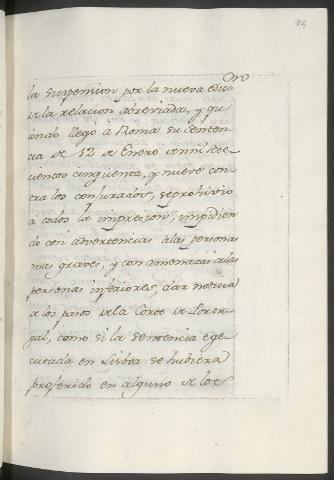 74
la suspension por la nueva edici
on
de la relacion abreviada, y qu
ando llego a Roma su senten
cia de 12 de Enero de mil sete
cientos cinquenta, y nueve con
tra los conjurados, se prohivio
a todos la impresion, impidien
do con advertencias à las personas
mas graves, y con amenazas a las
personas inferiores, dar noticia
de los pasos de la Corte de Portu
gal, como si la sentencia ege
cutada en Lisboa se hubiera
proferido en alguno de los